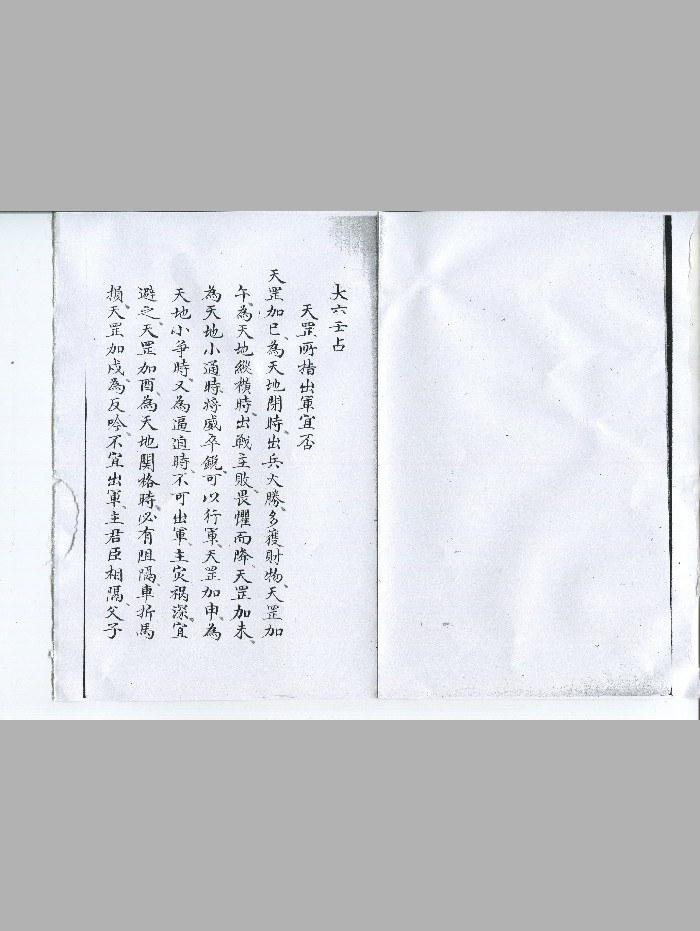 大六壬占
天罡所指出軍宜否
天罡加巳、為天地閉時、出兵大勝、多獲財物、天罡加
午、為天地縱橫時、出戰主敗、畏懼而降、天罡加未、
為天地小通時、將威卒銳、可以行軍、天罡加申、為
天地小爭時、又為逼迫時、不可出軍、主灾禍深、宜
避之、天罡加酉、為天地関格時、必有阻隔、車折馬
損、天罡加戍、為反吟、不宜出軍、主君臣相隔、父子